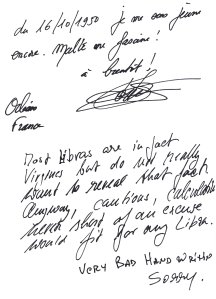 du 16/10/1950 je me sens jeune
encore. Malte me fascine!
à bientôt!
Odian
France
Most Libras are in fact
Virgines but do not really
want to reveal that fact.
Anyway, cautious, calculable
never short of an excuse
would fit for any Libra.
VERY BAD HAND WRITING
SORRY.